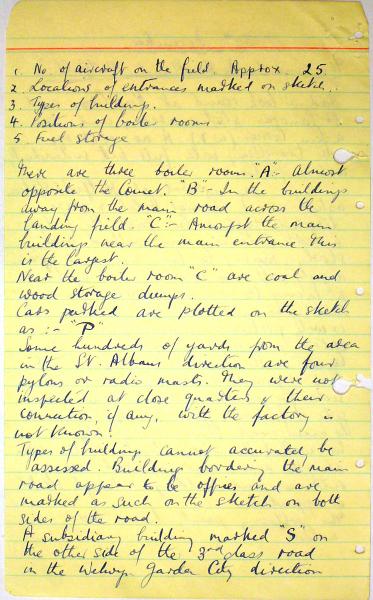 1. No. of aircraft on the field. Approx. 25
2. Locations of entrances marked on sketch.
3. Types of buildings.
4. Positions of boiler rooms
5. Fuel storage
There are three boiler rooms. "A":- Almost
opposite the Comet. "B":- In the buildings
away from the main road across the
landing field. "C":- Amongst the main
buildings near the main entrance. This
is the largest.
Near the boiler room "C" are coal and
wood storage dumps.
Cars parked are plotted on the sketch
as :- "P"
Some hundreds of yards from the area
in the St. Albans direction are four
pylons or radio masts. They were not
inspected at close quarters & their
connection, if any, with the factory is
not known.
Types of buildings cannot accurately be
assessed. Buildings bordering the main
road appear to be offices and are
marked as such on the sketch on both
sides of the road.
A subsidiary building marked "S" on
the other side of the 3rd class road
in the Welwyn Garden City direction